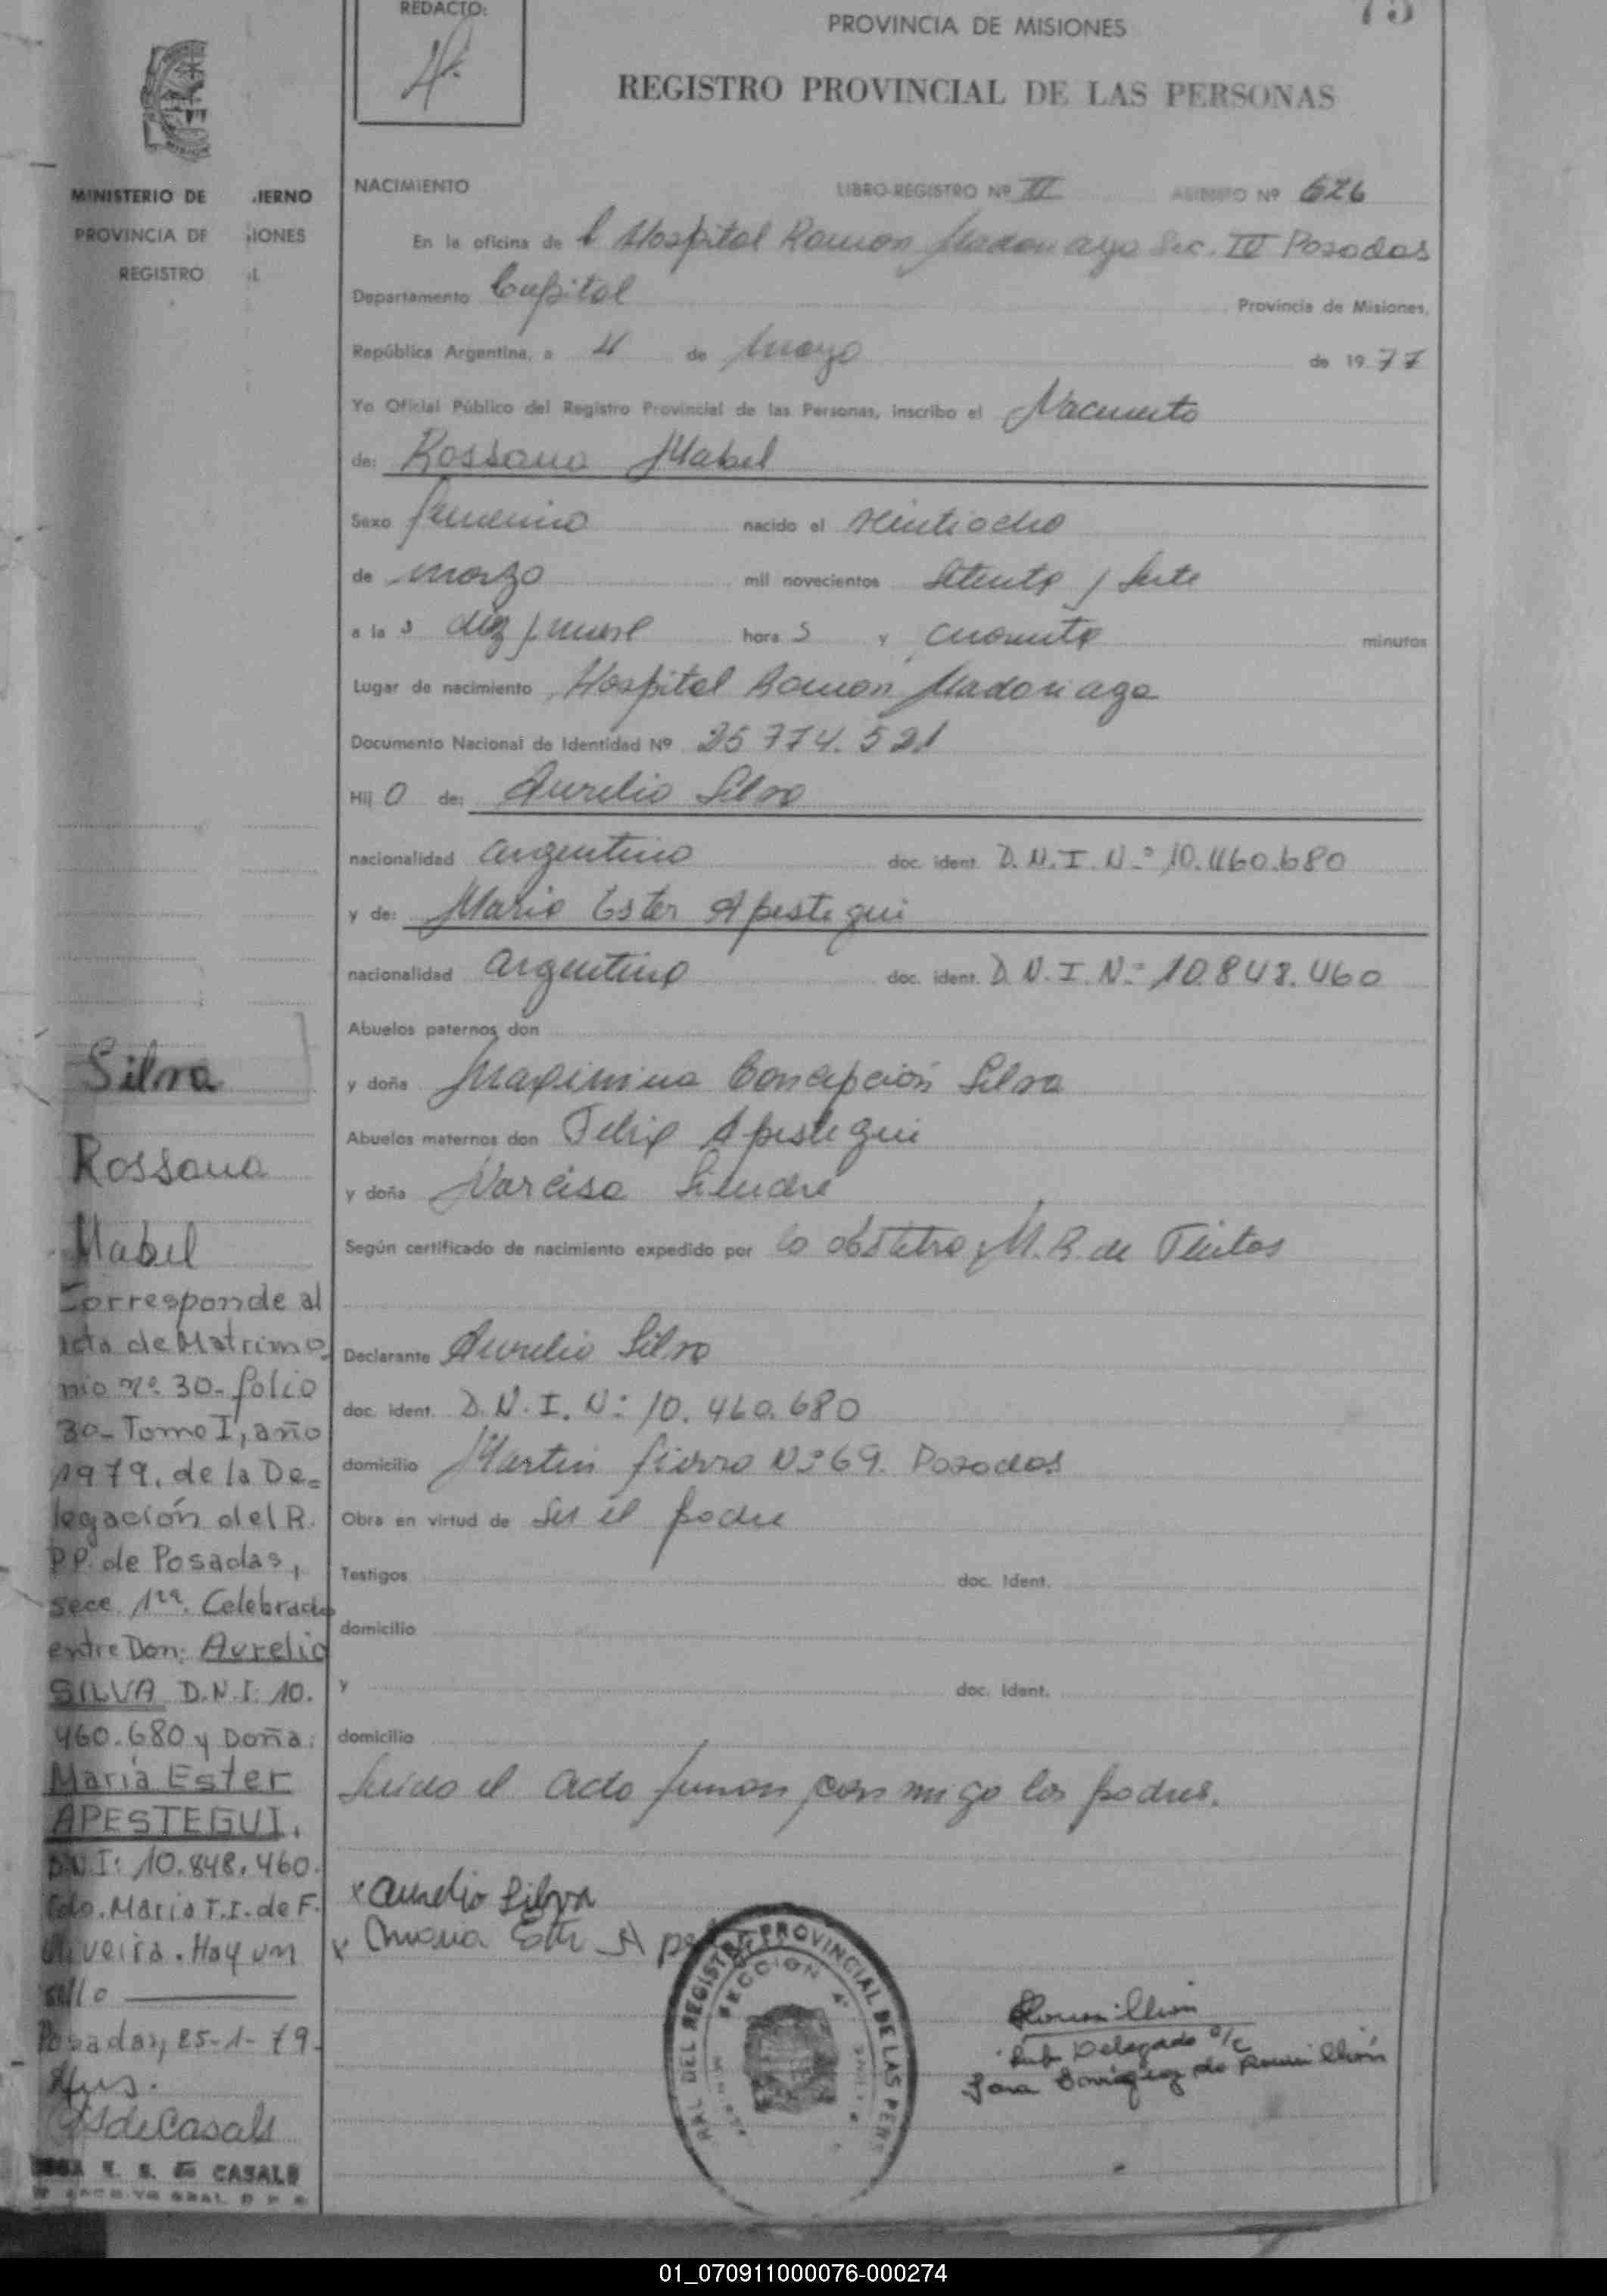 REDACTO:
PROVINCIA DE MISIONES
75
REGISTRO PROVINCIAL DE LAS PERSONAS
MINISTERIO DE IERNO
PROVINCIA DE IONES
REGISTRO L
NACIMIENTO LIBRO-REGISTRO Nº II ASIENTO Nº 626
En la oficina de Hospital Ramon Madariaga Sec. IV Posadas
Departamento Capital Provincia de Misiones,
República Argentina, a 4 de Mayo de 1977
Yo Oficial Público del Registro Provincial de las Personas, inscribo el Nacimiento
de: Rossana Mabel
Sexo femenino nacido el veintiocho
de marzo mil novecientos setenta y siete
a las diez y nueve horas y cuarenta minutos
Lugar de nacimiento Hospital Ramon Madariaga
Documento Nacional de Identidad Nº 25 774.521
Hijo de: Aurelio Silva
nacionalidad argentino doc. ident. D.N.I.Nº 10.460.680
y de: Maria Ester Apestegui
nacionalidad argentina doc. ident. D.N.I.Nº 10.848.460
Abuelos paternos don
y doña Maximina Concepción Silva
Abuelos maternos don Felix Apestegui
y doña Narcisa
Según certificado de nacimiento expedido por la obstetra M.R. de
Declarante Aurelio Silva
doc. ident. D.N.I.Nº 10.460.680
domicilio Martin fierro Nº 69. Posadas
Obra en virtud de ser el padre
Testigos doc. Ident.
domicilio
y doc. Ident.
domicilio
Leida el acta firman conmigo los padres.
x Aurelio Silva
x Maria Est Ape
RAL DEL REGISTRO PROVINCIAL DE LAS PERS
SECCION 4ª
Sub Delegado a/c
Sara de Roumillion
Silva
Rossana
Mabel
Corresponde al
acta de Matrimo
nio nº 30- folio
30- Tomo I, año
1979. de la De=
legación del R.
P.P. de Posadas,
secc 1ra. Celebrado
entre Don: Aurelio
SILVA D.N.I: 10.
460.680 y Doña:
Maria Ester
APESTEGUI.
D.N.I: 10.848.460.
Fdo. Maria T.I. de F.
Oliveira. Hay un
sello
Posadas, 25-1-79.
de Casals
E. S. de CASALS
01_070911000076-000274